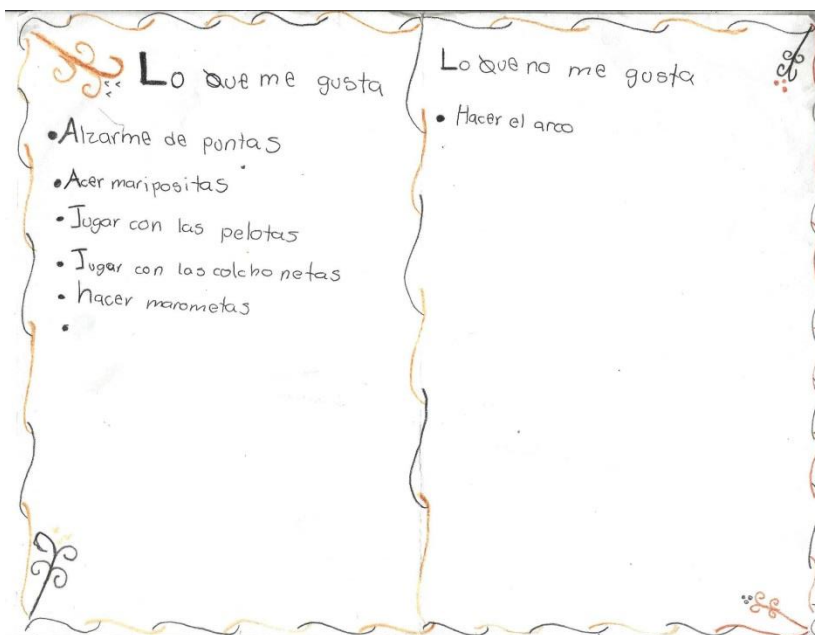 Lo que me gusta
• Alzarme de puntas
• Acer maripositas
• Jugar con las pelotas
• Jugar con las colchonetas
• hacer marometas
•
Lo que no me gusta
• Hacer el arco